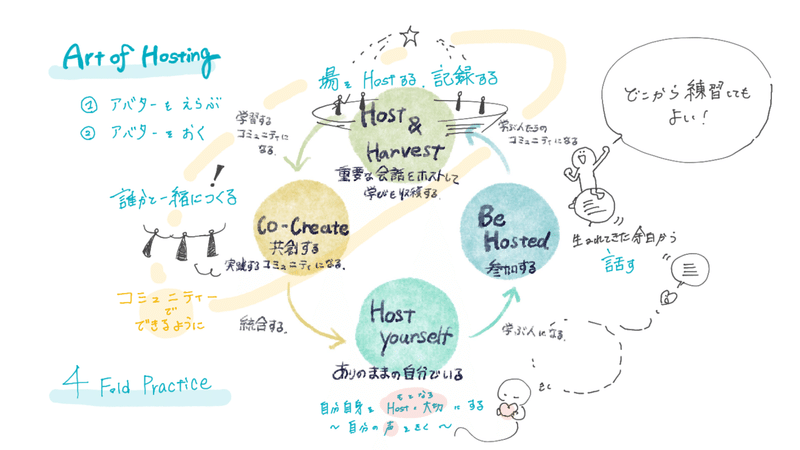 Art of Hosting
① アバターをえらぶ
② アバターをおく
場をHostする、記録する
Host
&
Harvest
重要な会話をホストして
学びを収穫する。
学習する
コミュニティに
なる。
学ぶ人たちの
コミュニティになる
どこから練習しても
よい！
誰かと一緒につくる
!
Co-Create
共創する
実践するコミュニティになる。
Be
Hosted
参加する
生まれてきた余白から
話す
コミュニティー
で
できるように
統合する。
Host
yourself
ありのままの自分でいる
学ぶ人になる。
4 Fold Practice
自分自身を Host・大切にする
〜自分の声をきく〜